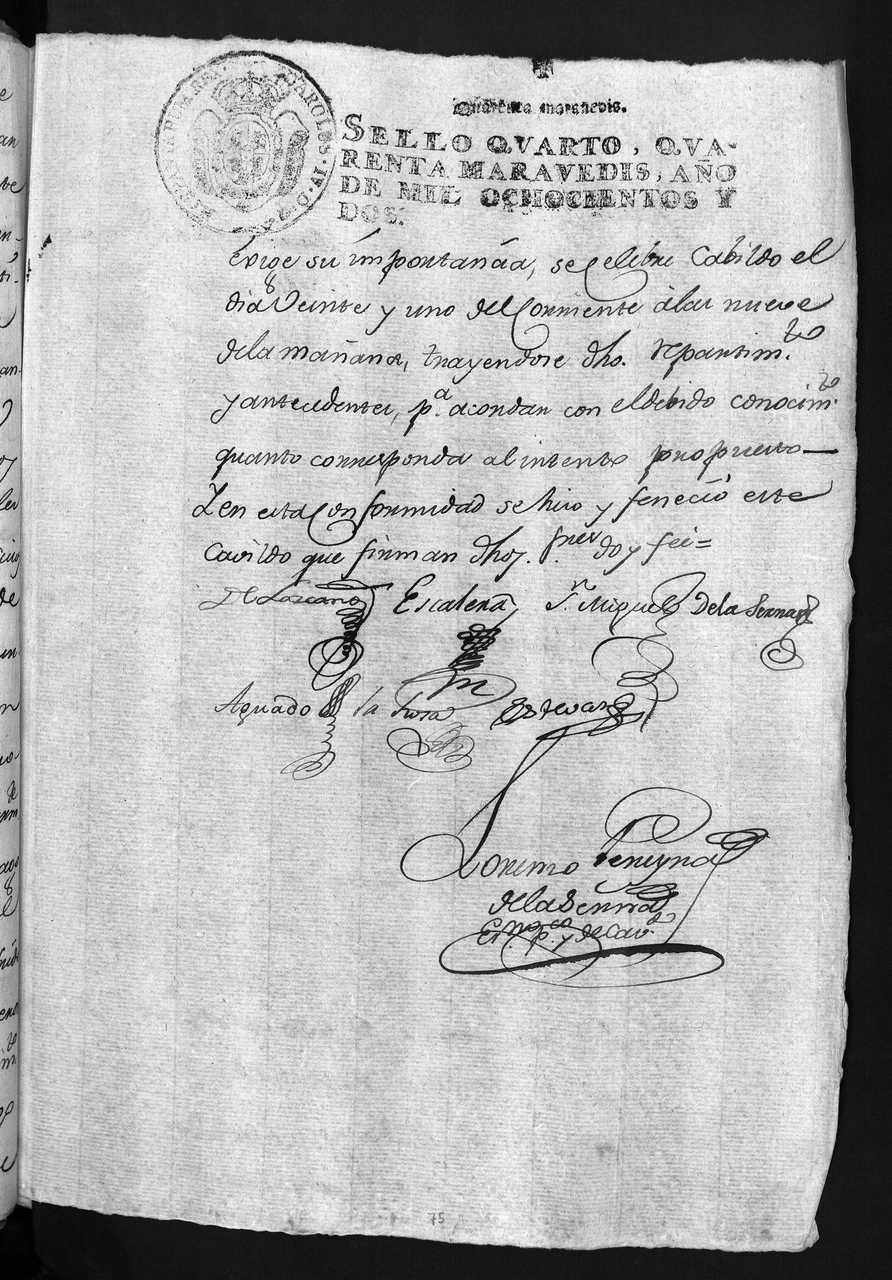 CAROLUS · IV · D · G · HISPANIAR · REX ·
Quarenta maravedis.
SELLO QVARTO, QVA-
RENTA MARAVEDIS, AÑO
DE MIL OCHOCIENTOS Y
DOS.
exige su importancia, se celebre Cabildo el
dia Veinte y uno del Corriente à las nueve
de la mañana, trayendose dho. repartim.to
y antecedentes, p.a acordar con el debido conocim.to
quanto corresponda al intento propuesto
Y en esta Conformidad se hizo y feneció este
Cavildo que firman dhos. S.res doy fee=
Lozcano Escalera S.n Miguel De la Serna
Aguado la Rosa Estevan
Lorenzo Pereyra
de la Serna
Es.no p.co y de Cav.do
75